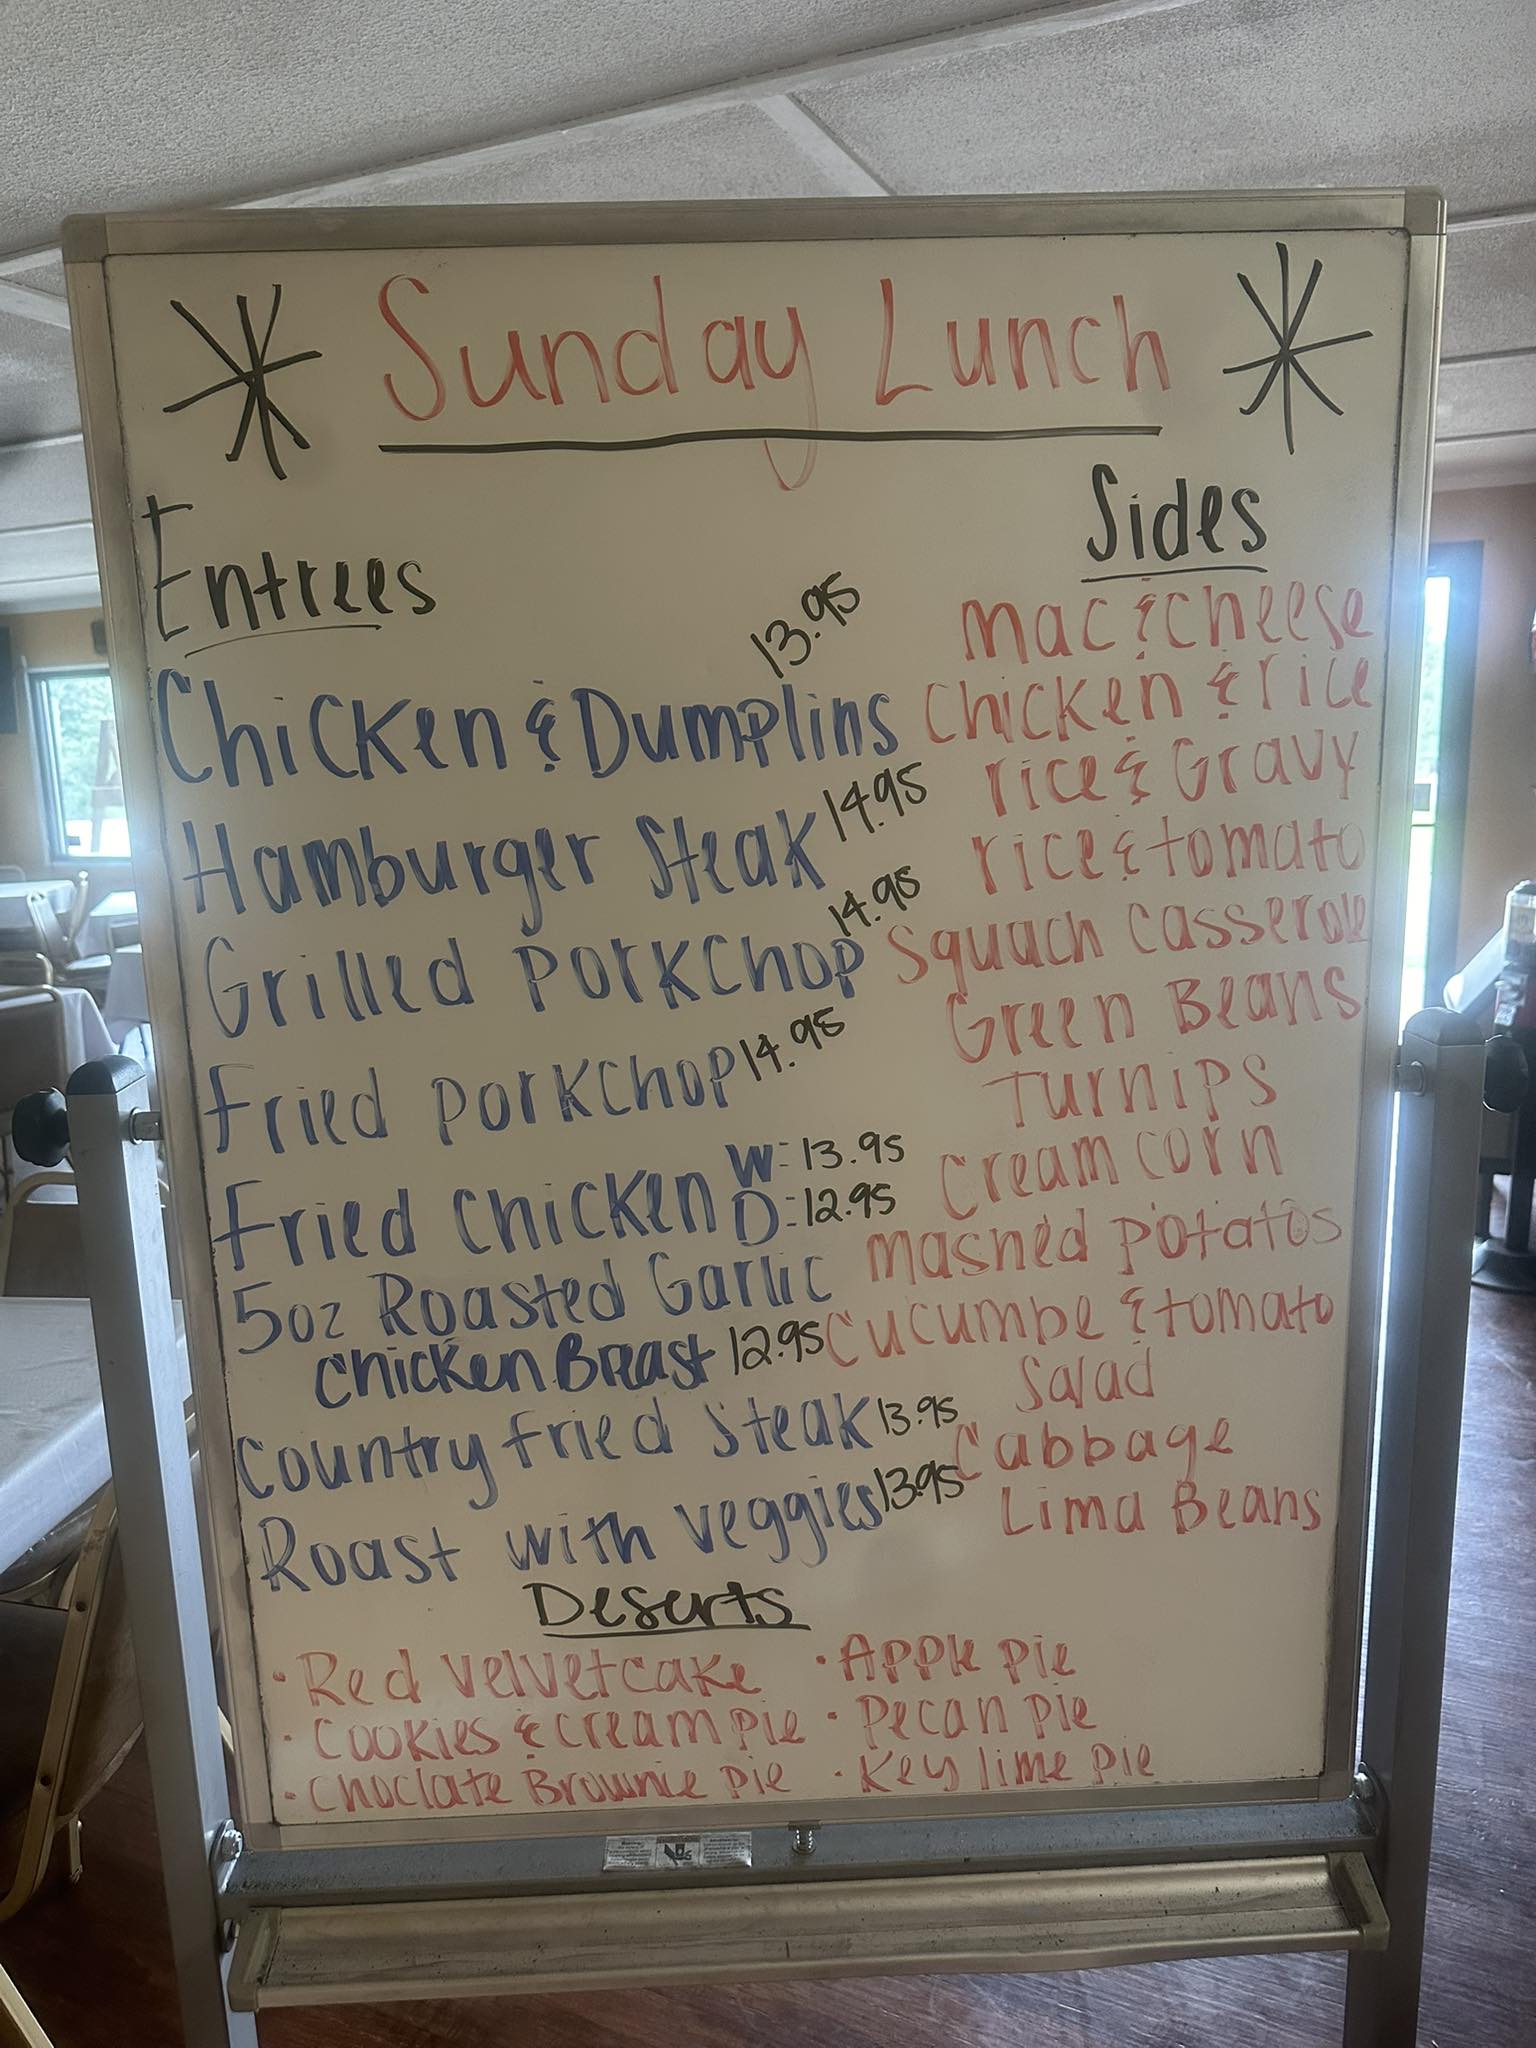 Sunday Lunch
Entrees
Chicken & Dumplins 13.95
Hamburger Steak 14.95
Grilled PorkChop 14.95
Fried PorkChop 14.95
Fried Chicken W: 13.95
D: 12.95
5oz Roasted Garlic
Chicken Breast 12.95
Country Fried Steak 13.95
Roast with veggies 13.95
Sides
Mac & cheese
Chicken & rice
rice & Gravy
rice & tomato
Squach Casserole
Green Beans
Turnips
Cream corn
Mashed Potatos
Cucumbe & tomato
Salad
Cabbage
Lima Beans
Deserts
· Red Velvet cake
· Cookies & cream pie
· Choclate Brownie pie
· Apple pie
· Pecan pie
· Key lime pie